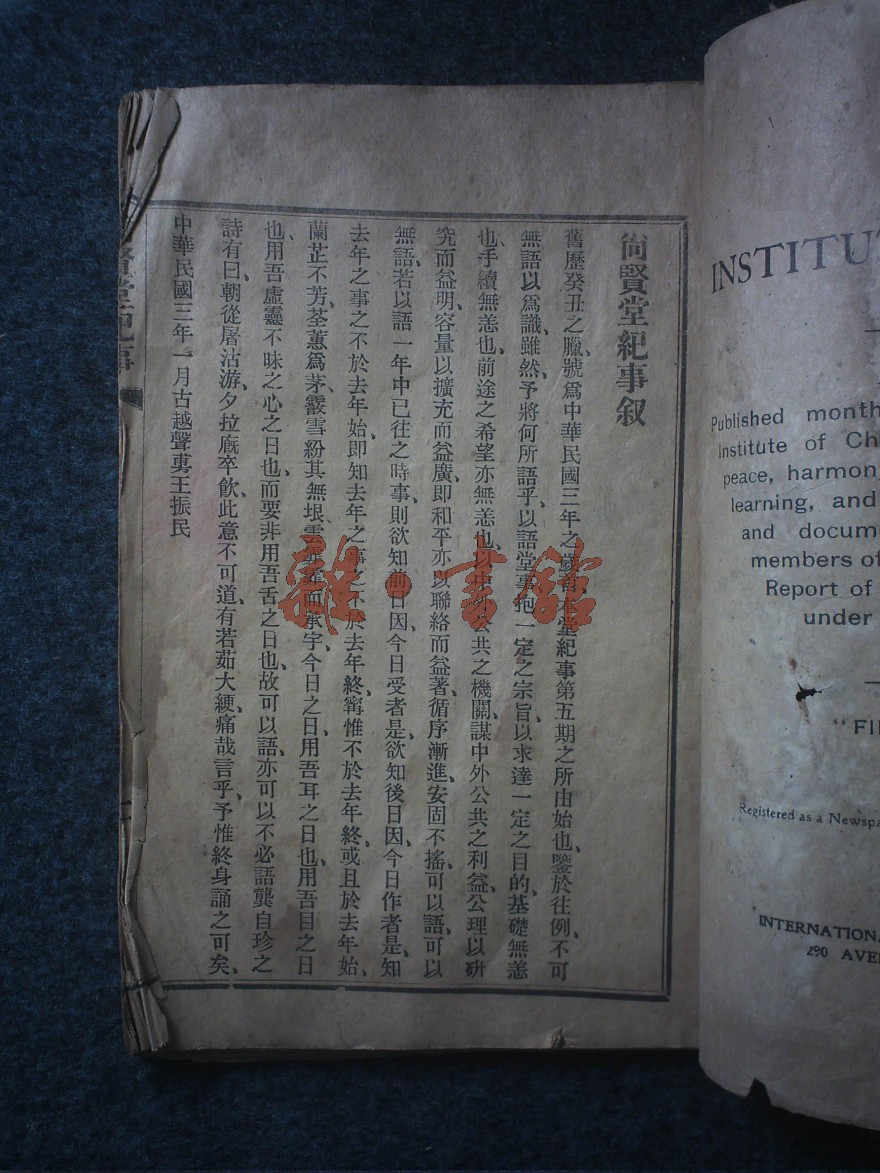 尙賢堂紀事叙
舊歷癸丑之臘、號爲中華民國三年之歲首、本堂紀事第五期之所由始也、鑒於往例、不可
無語以爲識、雖然、予將何所語乎、以語堂事、抱一定之宗旨、以求達一定之目的、基礎無恙
也、手續無恙也、前途之希望亦無恙也、以中外公共之機關、謀中外公共之利益、公理以硏
究而益明、容量以擴充而益廣、即和平亦以聯絡而益著、循序漸進、安固不搖、可以語、可以
無語、若以語一年中已往之時事、則欲知前日因、今日受者是、欲知後日因、今日作者是、知
去年之事之不於去年始、即知去年之事之不於去年終、寗惟不於去年終、或且於去年始、
蘭芷不芳、荃蕙爲茅、霰雪紛其無垠、雲霏霏而承宇、今日之日、用吾耳之日也、用吾目之日
也、用吾虛靈不昧之心之日也、而要非用吾舌之日也、故可以語、亦可以不必語、龔自珍之
詩有曰、朝從屠沽游、夕拉廐卒飲、此意不可道、有若茹大綆、痛哉言乎、予惟終身誦之可矣、
中華民國三年一月古越聲夷王振民
賢堂紀事
雒·書館
INSTITUT
Published month
Institute of Ch
peace, harmon
learning, and
and docum
members of
Report of
under
"FI
Registered as a Newspa
INTERNATIONA
290 AVE